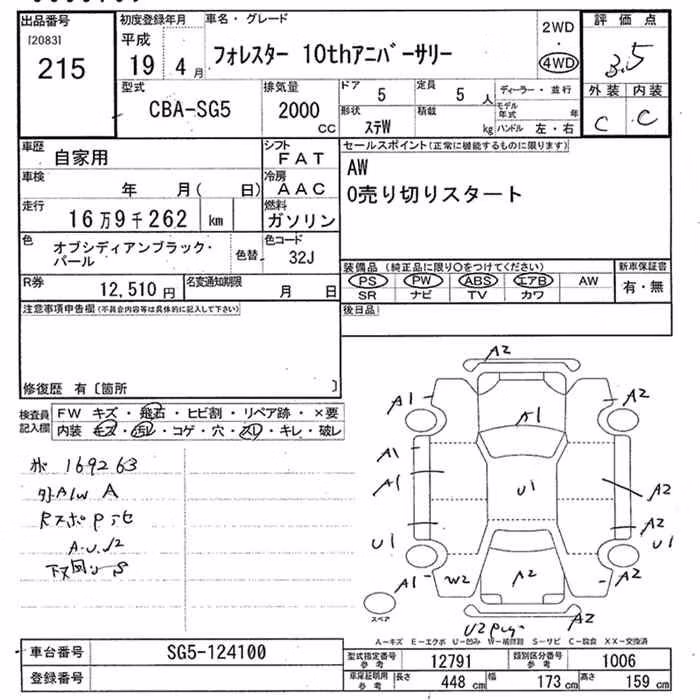 出品番号
[2083]
215
初度登録年月
平成
19年4月
車名・グレード
フォレスター 10thアニバーサリー
2WD
4WD
評価点
3.5
外装 内装
C C
型式
CBA-SG5
排気量
2000 CC
ドア 5
定員 5 人
形状 ステW
積載 kg
ディーラー・並行
モデル年式 年
ハンドル 左・右
車歴 自家用
シフト FAT
車検 年 月( 日)
冷房 AAC
走行 16万9千262 km
燃料 ガソリン
色 オブシディアンブラック・パール
色替
色コード 32J
R券 12,510円
名変通知期限 月 日
セールスポイント(正常に機能するものに限ります)
AW
0売り切りスタート
装備品(純正品に限り○をつけてください)
新車保証書
PS PW ABS エアB AW
SR ナビ TV カワ
有・無
後日品
注意事項申告欄(不具合内容等は具体的に記入して下さい)
修復歴 有〔箇所 〕
検査員記入欄
FW キズ・飛石・ヒビ割・リペア跡・×要
内装 キズ・汚レ・コゲ・穴・スレ・キレ・破レ
169263
外A/W A
A2
A1 A2
A1
A1
A1
U1
A2
A2
U1 U1
A1 W2 A2 A2
U2 A2
スペア
A-キズ E-エクボ U-凹み W-補修跡 S-サビ C-腐食 XX-交換済
車台番号 SG5-124100
登録番号
型式指定番号 参考 12791
類別区分番号 参考 1006
車庫証明用 参考
長さ 448 cm
幅 173 cm
高さ 159 cm